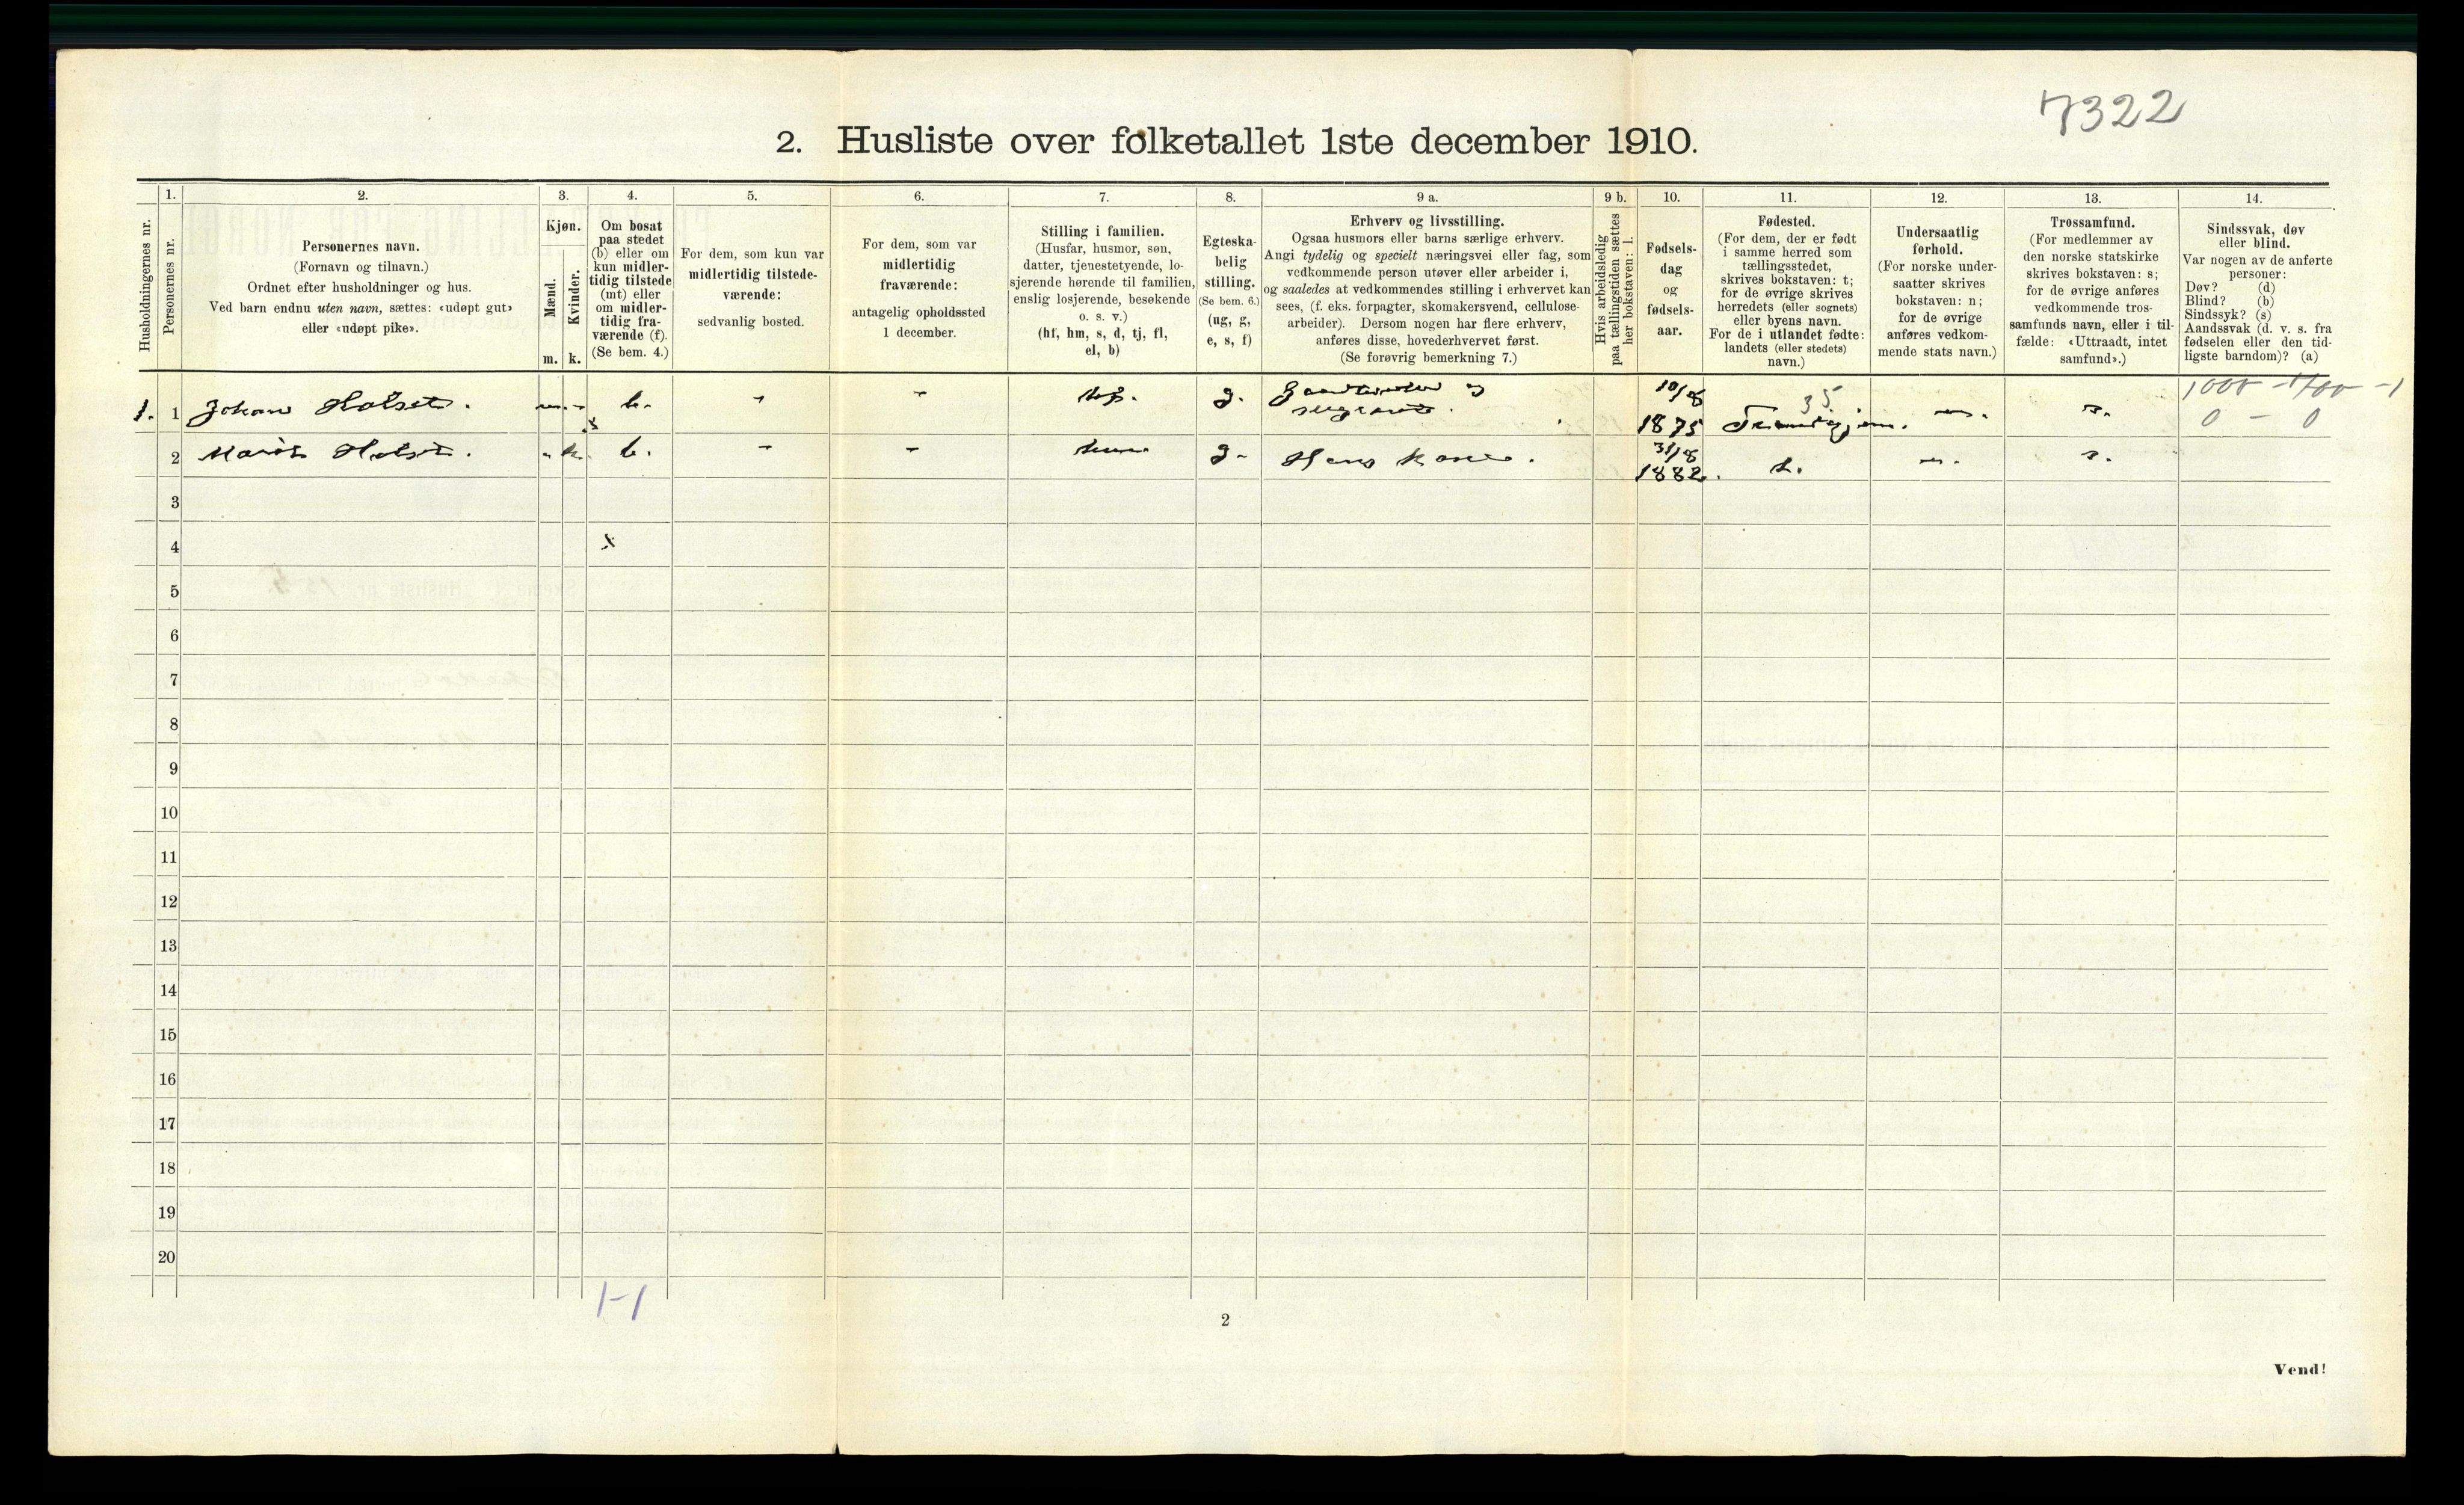 7322
2. Husliste over folketallet 1ste december 1910.
1. 2. 3. 4. 5. 6. 7. 8. 9 a. 9 b. 10. 11. 12. 13. 14.
Husholdningernes nr.
Personernes nr.
Personernes navn.
(Fornavn og tilnavn.)
Ordnet efter husholdninger og hus.
Ved barn endnu uten navn, sættes: «udøpt gut»
eller «udøpt pike».
Kjøn.
Mænd.
Kvinder.
m. k.
Om bosat
paa stedet
(b) eller om
kun midler-
tidig tilstede
(mt) eller
om midler-
tidig fra-
værende (f).
(Se bem. 4.)
For dem, som kun var
midlertidig tilstede-
værende:
sedvanlig bosted.
For dem, som var
midlertidig
fraværende:
antagelig opholdssted
1 december.
Stilling i familien.
(Husfar, husmor, søn,
datter, tjenestetyende, lo-
sjerende hørende til familien,
enslig losjerende, besøkende
o. s. v.)
(hf, hm, s, d, tj, fl,
el, b)
Egteska-
belig
stilling.
(Se bem. 6.)
(ug, g,
e, s, f)
Erhverv og livsstilling.
Ogsaa husmors eller barns særlige erhverv.
Angi tydelig og specielt næringsvei eller fag, som
vedkommende person utøver eller arbeider i,
og saaledes at vedkommendes stilling i erhvervet kan
sees, (f. eks. forpagter, skomakersvend, cellulose-
arbeider). Dersom nogen har flere erhverv,
anføres disse, hovederhvervet først.
(Se forøvrig bemerkning 7.)
Hvis arbeidsledig
paa tællingstiden sættes
her bokstaven: l.
Fødsels-
dag
og
fødsels-
aar.
Fødested.
(For dem, der er født
i samme herred som
tællingsstedet,
skrives bokstaven: t;
for de øvrige skrives
herredets (eller sognets)
eller byens navn.
For de i utlandet fødte:
landets (eller stedets)
navn.)
Undersaatlig
forhold.
(For norske under-
saatter skrives
bokstaven: n;
for de øvrige
anføres vedkom-
mende stats navn.)
Trossamfund.
(For medlemmer av
den norske statskirke
skrives bokstaven: s;
for de øvrige anføres
vedkommende tros-
samfunds navn, eller i til-
fælde: «Uttraadt, intet
samfund».)
Sindssvak, døv
eller blind.
Var nogen av de anførte
personer:
Døv? (d)
Blind? (b)
Sindssyk? (s)
Aandssvak (d. v. s. fra
fødselen eller den tid-
ligste barndom)? (a)
1000 - 1/100 - 1
1. 1 Johan Holset. m. - b. - - hf. g. Gaardbruker og 10/8 35
sergeant. 1875 n. s. 0 - 0
x
2 Marit Holset. - k. b. - - hm g. Hans kone. 31/8
1882. t. n. s.
3
4 x
5
6
7
8
9
10
11
12
13
14
15
16
17
18
19
20
1-1
2
Vend!